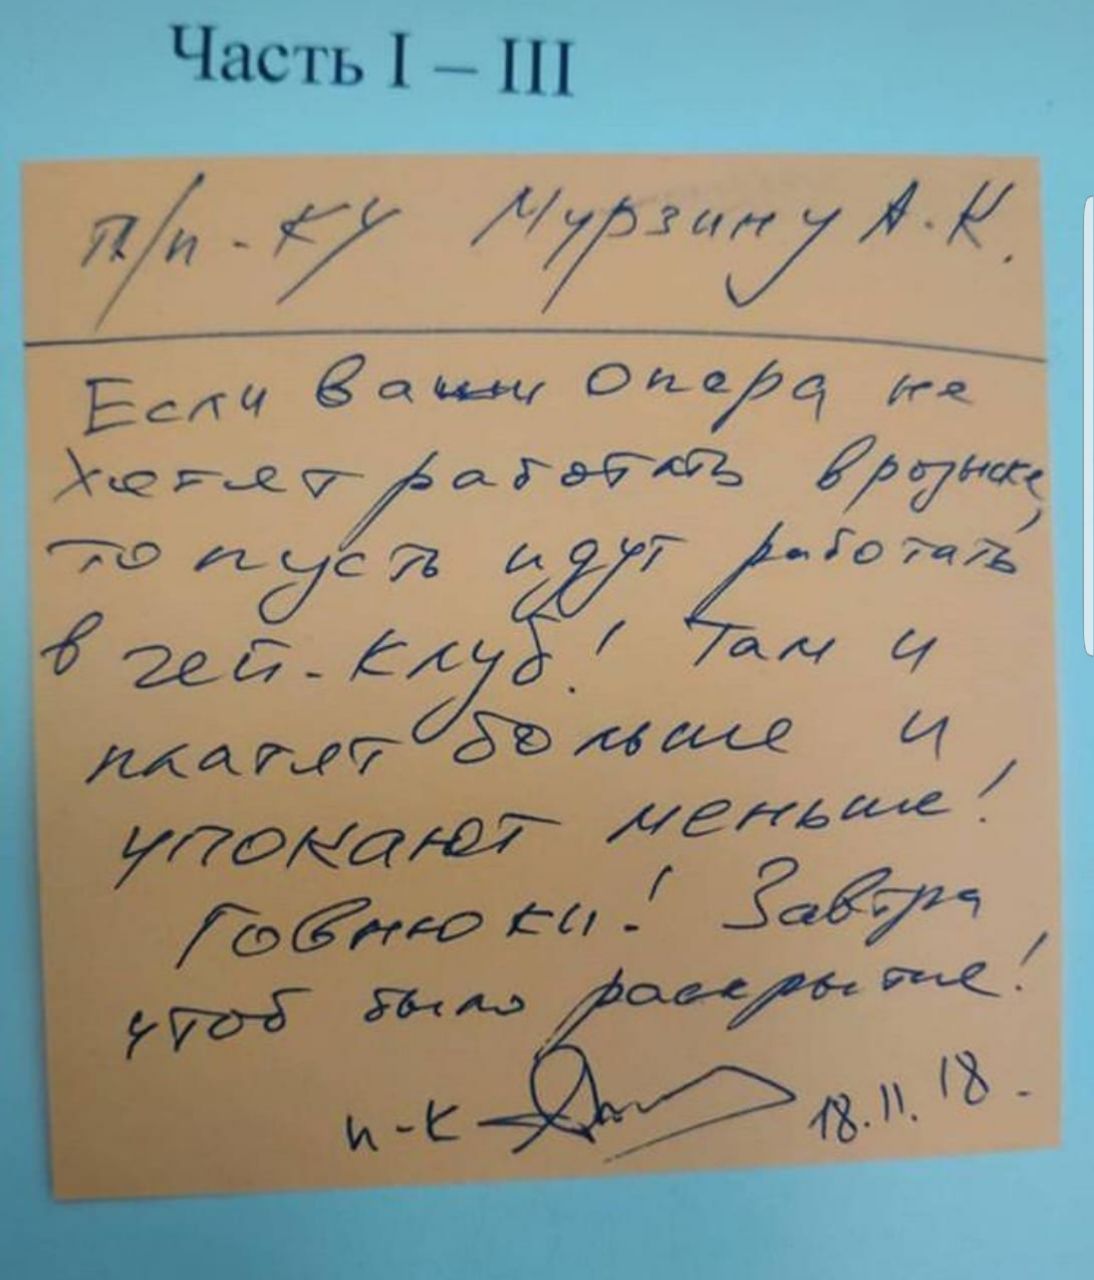 Часть I – III
П/п-ку Мурзину А.К.
Если ваши опера не
хотят работать в розыске,
то пусть идут работать
в гей-клуб! Там и
платят больше и
упокают меньше!
Говнюки! Завтра
чтоб было раскрытие!
п-к 18.11.18.